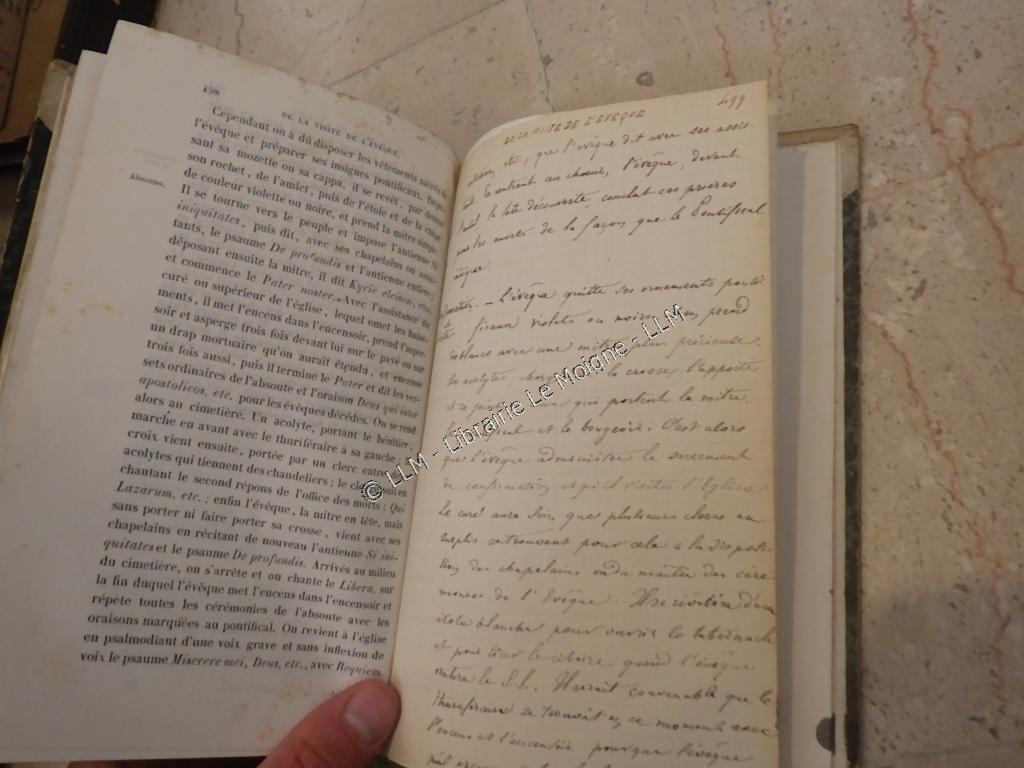 498
DE LA VISITE DE L'ÉVÊQUE.
Cependant on a dû disposer les vêtements sacrés de
l'évêque et préparer ses insignes pontificaux. Dépo-
sant sa mozette ou sa cappa, il se revêt, par dessus
son rochet, de l'amict, puis de l'étole et de la chape
de couleur violette ou noire, et prend la mitre simple.
Absoutes.
Il se tourne vers le peuple et impose l'antienne Si
iniquitates, puis dit, avec ses chapelains ou assis-
tants, le psaume De profundis et l'antienne entière;
déposant ensuite la mitre, il dit Kyrie eleison, etc.,
et commence le Pater noster. Avec l'assistance du
curé ou supérieur de l'église, lequel omet les baise-
ments, il met l'encens dans l'encensoir, prend l'asper-
soir et asperge trois fois devant lui sur le pavé ou sur
un drap mortuaire qu'on aurait étendu, et encense
trois fois aussi, puis il termine le Pater et dit les ver-
sets ordinaires de l'absoute et l'oraison Deus qui inter
apostolicos, etc. pour les évêques décédés. On se rend
alors au cimetière. Un acolyte, portant le bénitier,
marche en avant avec le thuriféraire à sa gauche; la
croix vient ensuite, portée par un clerc entre
acolytes qui tiennent des chandeliers; le clergé suit en
chantant le second répons de l'office des morts : Qui
Lazarum, etc.; enfin l'évêque, la mitre en tête, mais
sans porter ni faire porter sa crosse, vient avec ses
chapelains en récitant de nouveau l'antienne Si ini-
quitates et le psaume De profundis. Arrivés au milieu
du cimetière, on s'arrête et on chante le Libera, sur
la fin duquel l'évêque met l'encens dans l'encensoir et
répète toutes les cérémonies de l'absoute avec les
oraisons marquées au pontifical. On revient à l'église
en psalmodiant d'une voix grave et sans inflexion de
voix le psaume Miserere mei, Deus, etc., avec Requiem
499
DE LA VISITE DE L'EVEQUE
etc, que l'évêque dit avec ses assis-
tants. En rentrant au choeur, l'évêque, devant
l'autel, la tête découverte, conclut ces prières
pour les morts de la façon que le Pontifical
indique.
L'évêque quitte ses ornements ponti-
ficaux violets ou noirs, en prend
de blancs avec une mitre plus précieuse.
Un acolyte, chargé de la crosse l'apporte
et se joint à ceux qui portent la mitre,
et le bougeoir. C'est alors
que l'évêque administre le sacrement
de confirmation et qu'il visite l'Eglise
le curé aura soin que plusieurs clercs en
surplis se trouvent pour cela à la disposi-
tion des chapelains ou du maître des céré
monies de l'Evêque. Il se revêtira d'une
étole blanche pour ouvrir le tabernacle
et pour tirer le ciboire quand l'évêque
visitera le S.S. Il serait convenable que le
thuriféraire se trouvât en ce moment avec
l'encens et l'encensoir pour que l'évêque
© LLM - Librairie Le Moigne - LLM